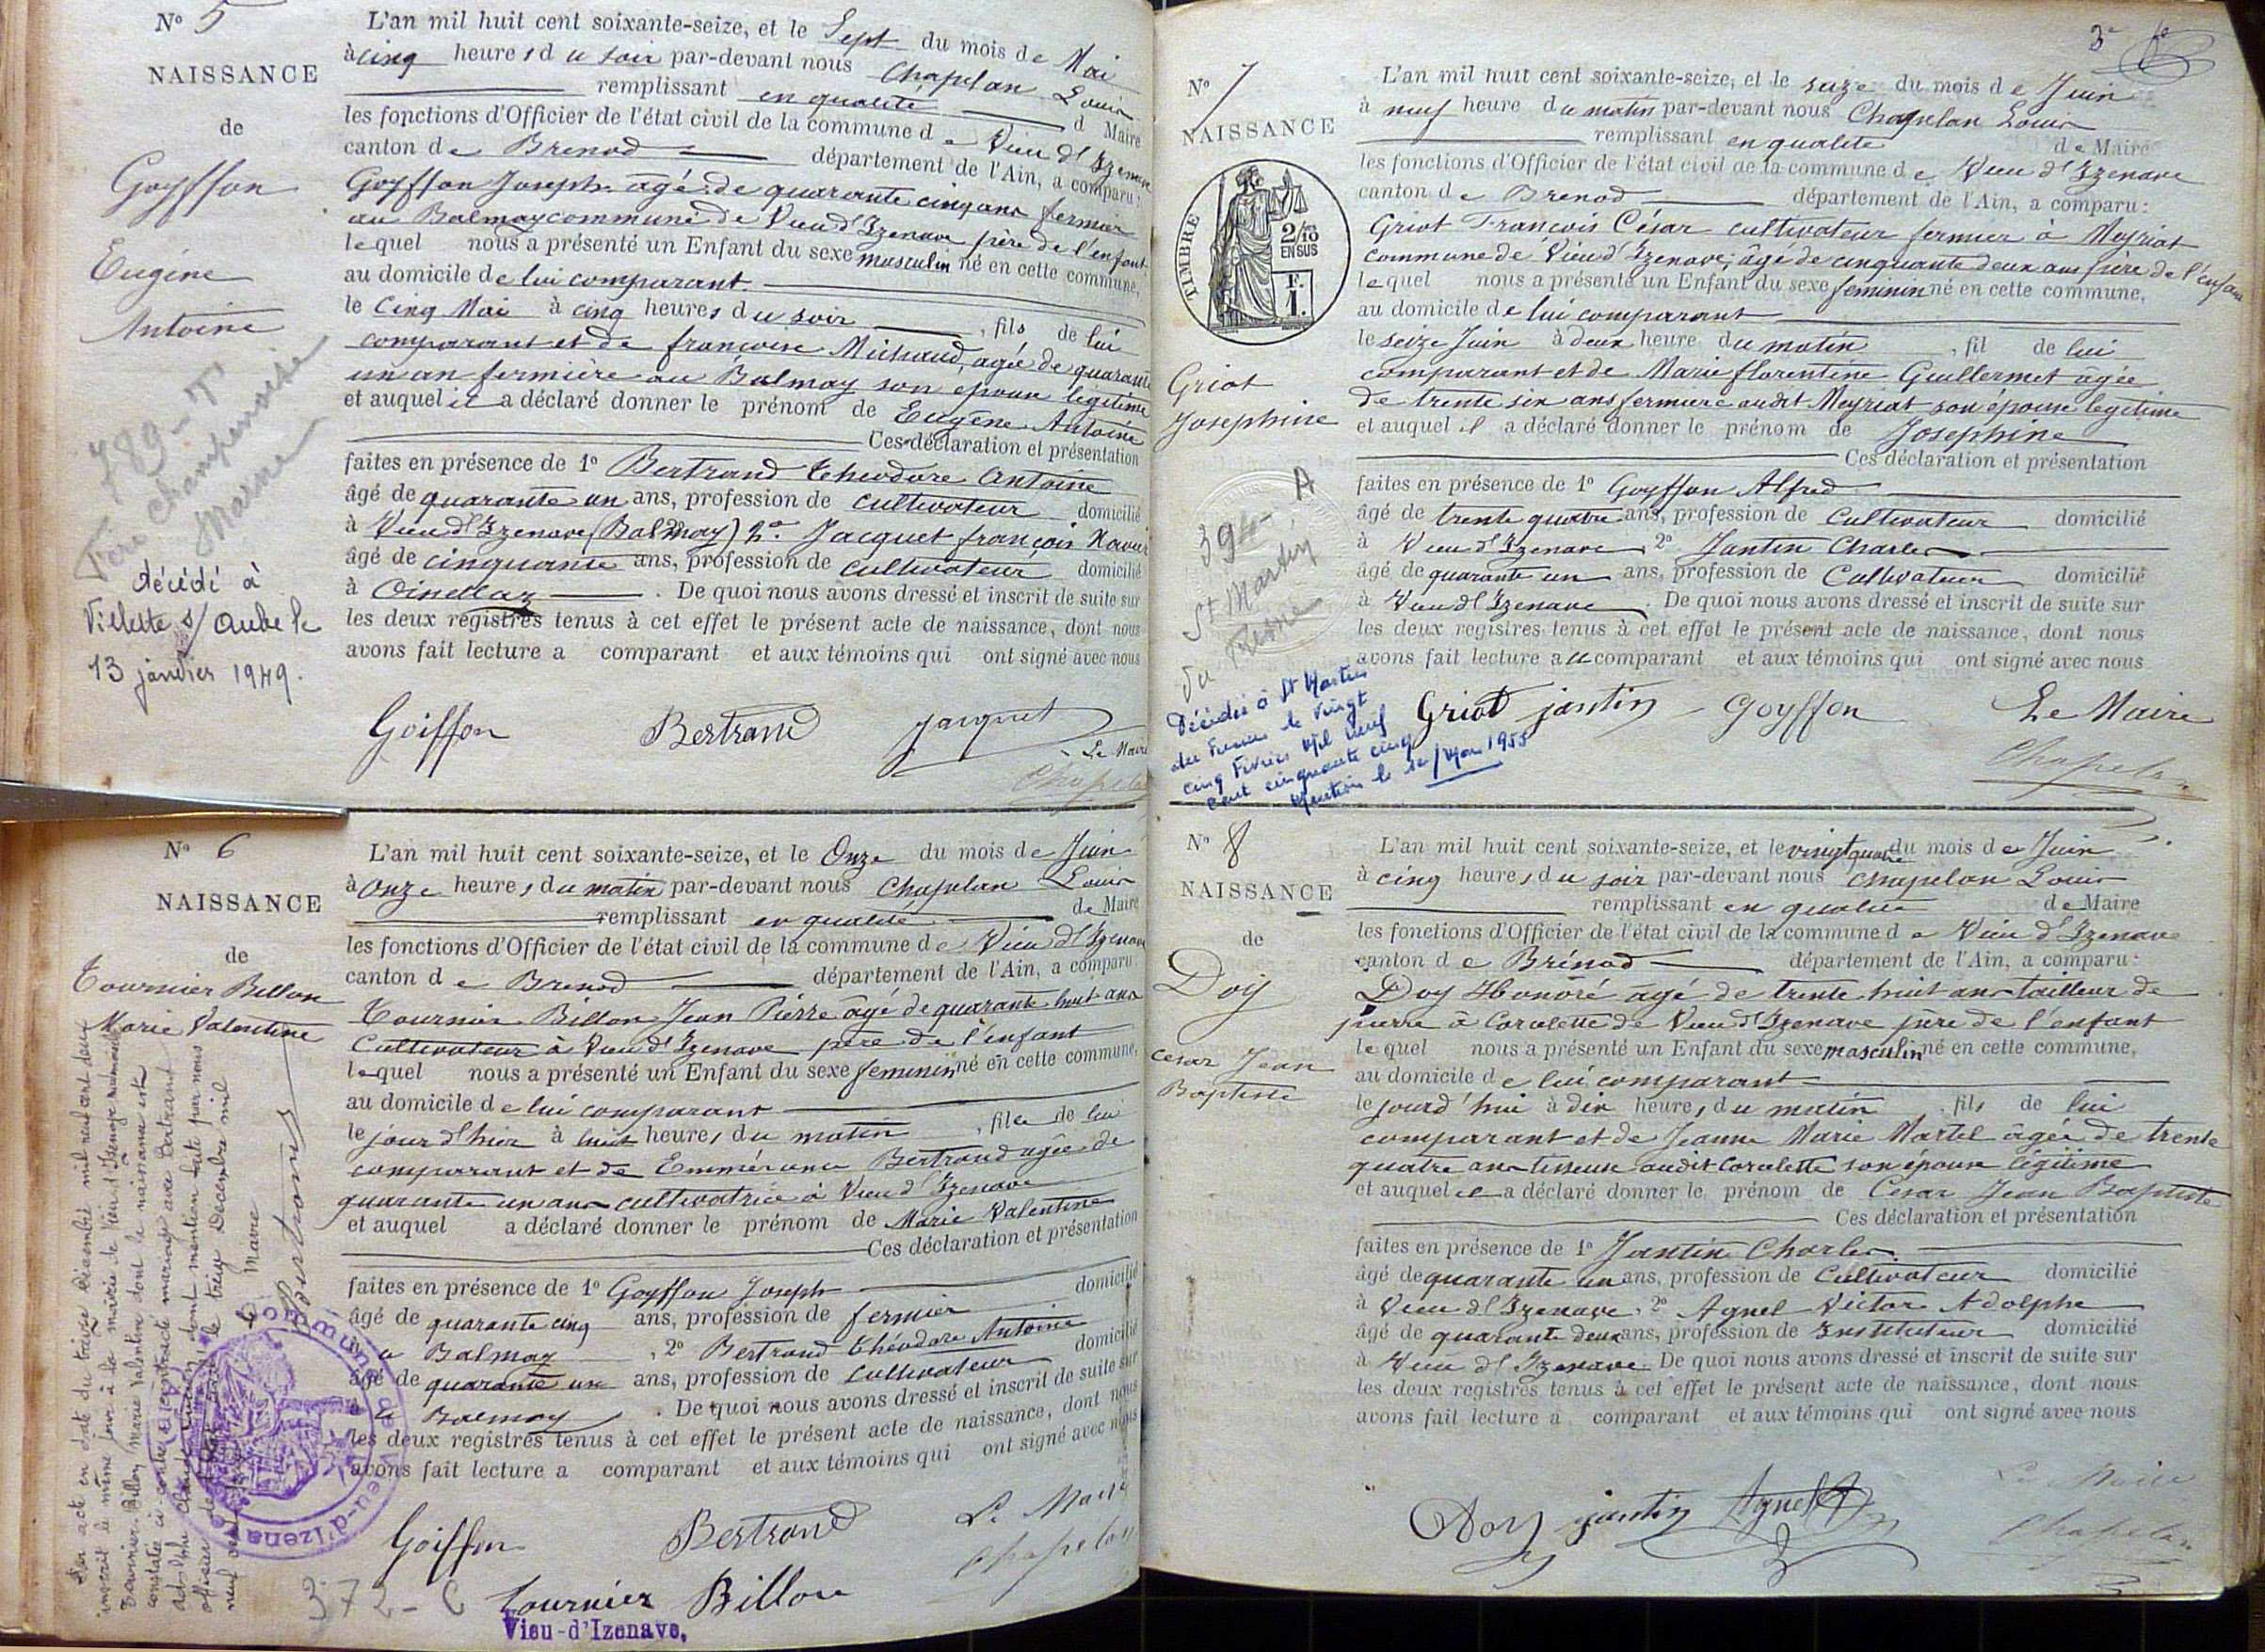 N° 5
NAISSANCE
de
Goyffon
Eugène
Antoine
789-T
Fère Champenoise
Marne
décédé à
Villette s/ Aube le
13 janvier 1949.
L'an mil huit cent soixante-seize, et le Sept du mois de Mai
à cinq heures du soir par-devant nous Chapelan Louis
remplissant en qualité d Maire
les fonctions d'Officier de l'état civil de la commune de Vieu d'Izenave
canton de Brenod département de l'Ain, a comparu:
Goyffon Joseph âgé de quarante cinq ans fermier
au Balmay commune de Vieu d'Izenave père de l'enfant
lequel nous a présenté un Enfant du sexe masculin né en cette commune,
au domicile de lui comparant
le Cinq Mai à cinq heures du soir, fils de lui
comparant et de francoise Michaud, agée de quarante
un an fermière au Balmay son epouse legitime
et auquel il a déclaré donner le prénom de Eugène Antoine
Ces déclaration et présentation
faites en présence de 1° Bertrand Theodore Antoine
âgé de quarante un ans, profession de cultivateur domicilié
à Vieu d'Izenave (Balmay) 2° Jacquet françois Xavier
âgé de cinquante ans, profession de cultivateur domicilié
à Oisellaz. De quoi nous avons dressé et inscrit de suite sur
les deux registres tenus à cet effet le présent acte de naissance, dont nous
avons fait lecture a comparant et aux témoins qui ont signé avec nous
Goiffon Bertrand Jacquet
Le Maire
Chapelan
N° 6
NAISSANCE
de
Tournier Billon
Marie Valentine
Par acte en date du treize Décembre mil neuf cent deux
inscrit le même jour à la mairie de Vieu d'Izenave
Tournier-Billon Marie Valentine dont la naissance est
constatée ci-contre a contracté mariage avec Bertrand
dont mention faite par nous
officier de l'état civil le treize Decembre mil
neuf cent
Le Maire
Bertrand
Commune de Vieu-d'Izenave
(AIN)
L'an mil huit cent soixante-seize, et le Onze du mois de Juin
à onze heures du matin par-devant nous Chapelan Louis
remplissant en qualité de Maire
les fonctions d'Officier de l'état civil de la commune de Vieu d'Izenave
canton de Brenod département de l'Ain, a comparu
Tournier Billon Jean Pierre âgé de quarante huit ans
Cultivateur à Vieu d'Izenave père de l'enfant
lequel nous a présenté un Enfant du sexe feminin né en cette commune,
au domicile de lui comparant
le jour d'hier à huit heures du matin, fille de lui
comparant et de Emmérance Bertrand agée de
quarante un ans cultivatrice à Vieu d'Izenave
et auquel a déclaré donner le prénom de Marie Valentine
Ces déclaration et présentation
faites en présence de 1° Goyffon Joseph domicilié
âgé de quarante cinq ans, profession de fermier
Balmay, 2° Bertrand théodore Antoine
âgé de quarante un ans, profession de cultivateur domicilié
Balmay. De quoi nous avons dressé et inscrit de suite sur
les deux registres tenus à cet effet le présent acte de naissance, dont nous
avons fait lecture a comparant et aux témoins qui ont signé avec nous
Goiffon Bertrand Le Maire
Chapelan
372-C Tournier Billon
Vieu-d'Izenave,
3e
N° 7
NAISSANCE
TIMBRE
2/10 EN SUS
F. 1.
Griot
Josephine
394-A
St Martin
du Fresne
Décédée à St Martin
du Fresne le vingt
cinq Février Mil neuf
cent cinquante cinq
Mention le 1er Mars 1955
L'an mil huit cent soixante-seize, et le seize du mois de Juin
à neuf heure du matin par-devant nous Chapelan Louis
remplissant en qualité de Maire
les fonctions d'Officier de l'état civil de la commune de Vieu d'Izenave
canton de Brenod département de l'Ain, a comparu:
Griot Francois César cultivateur fermier à Meyriat
commune de Vieu d'Izenave; âgé de cinquante deux ans père de l'enfant
lequel nous a présenté un Enfant du sexe feminin né en cette commune,
au domicile de lui comparant
le seize Juin à deux heure du matin, fil de lui
comparant et de Marie florentine Guillermet âgée
de trente six ans fermiere audit Meyriat son épouse legitime
et auquel il a déclaré donner le prénom de Josephine
Ces déclaration et présentation
faites en présence de 1° Goyffon Alfred
âgé de trente quatre ans, profession de cultivateur domicilié
à Vieu d'Izenave, 2° Jantin Charles
âgé de quarante un ans, profession de Cultivateur domicilié
à Vieu d'Izenave De quoi nous avons dressé et inscrit de suite sur
les deux registres tenus à cet effet le présent acte de naissance, dont nous
avons fait lecture au comparant et aux témoins qui ont signé avec nous
Griot jantin Goyffon Le Maire
Chapelan
N° 8
NAISSANCE
de
Doy
Cesar Jean
Baptiste
L'an mil huit cent soixante-seize, et le vingt quatre du mois de Juin
à cinq heures du soir par-devant nous Chapelan Louis
remplissant en qualité de Maire
les fonctions d'Officier de l'état civil de la commune de Vieu d'Izenave
canton de Brénod département de l'Ain, a comparu:
Doy Honoré âgé de trente huit ans tailleur de
pierre à Corcelette de Vieu d'Izenave père de l'enfant
lequel nous a présenté un Enfant du sexe masculin né en cette commune,
au domicile de lui comparant
le jourd'hui à dix heures du matin, fils de lui
comparant et de Jeanne Marie Martel âgée de trente
quatre ans tisseuse audit Corcelette son épouse légitime
et auquel il a déclaré donner le prénom de Cesar Jean Baptiste
Ces déclaration et présentation
faites en présence de 1° Jantin Charles
âgé de quarante un ans, profession de Cultivateur domicilié
à Vieu d'Izenave, 2° Agnel Victor Adolphe
âgé de quarante deux ans, profession de Instituteur domicilié
à Vieu d'Izenave De quoi nous avons dressé et inscrit de suite sur
les deux registres tenus à cet effet le présent acte de naissance, dont nous
avons fait lecture a comparant et aux témoins qui ont signé avec nous
Doy jantin Agnel Le Maire
Chapelan